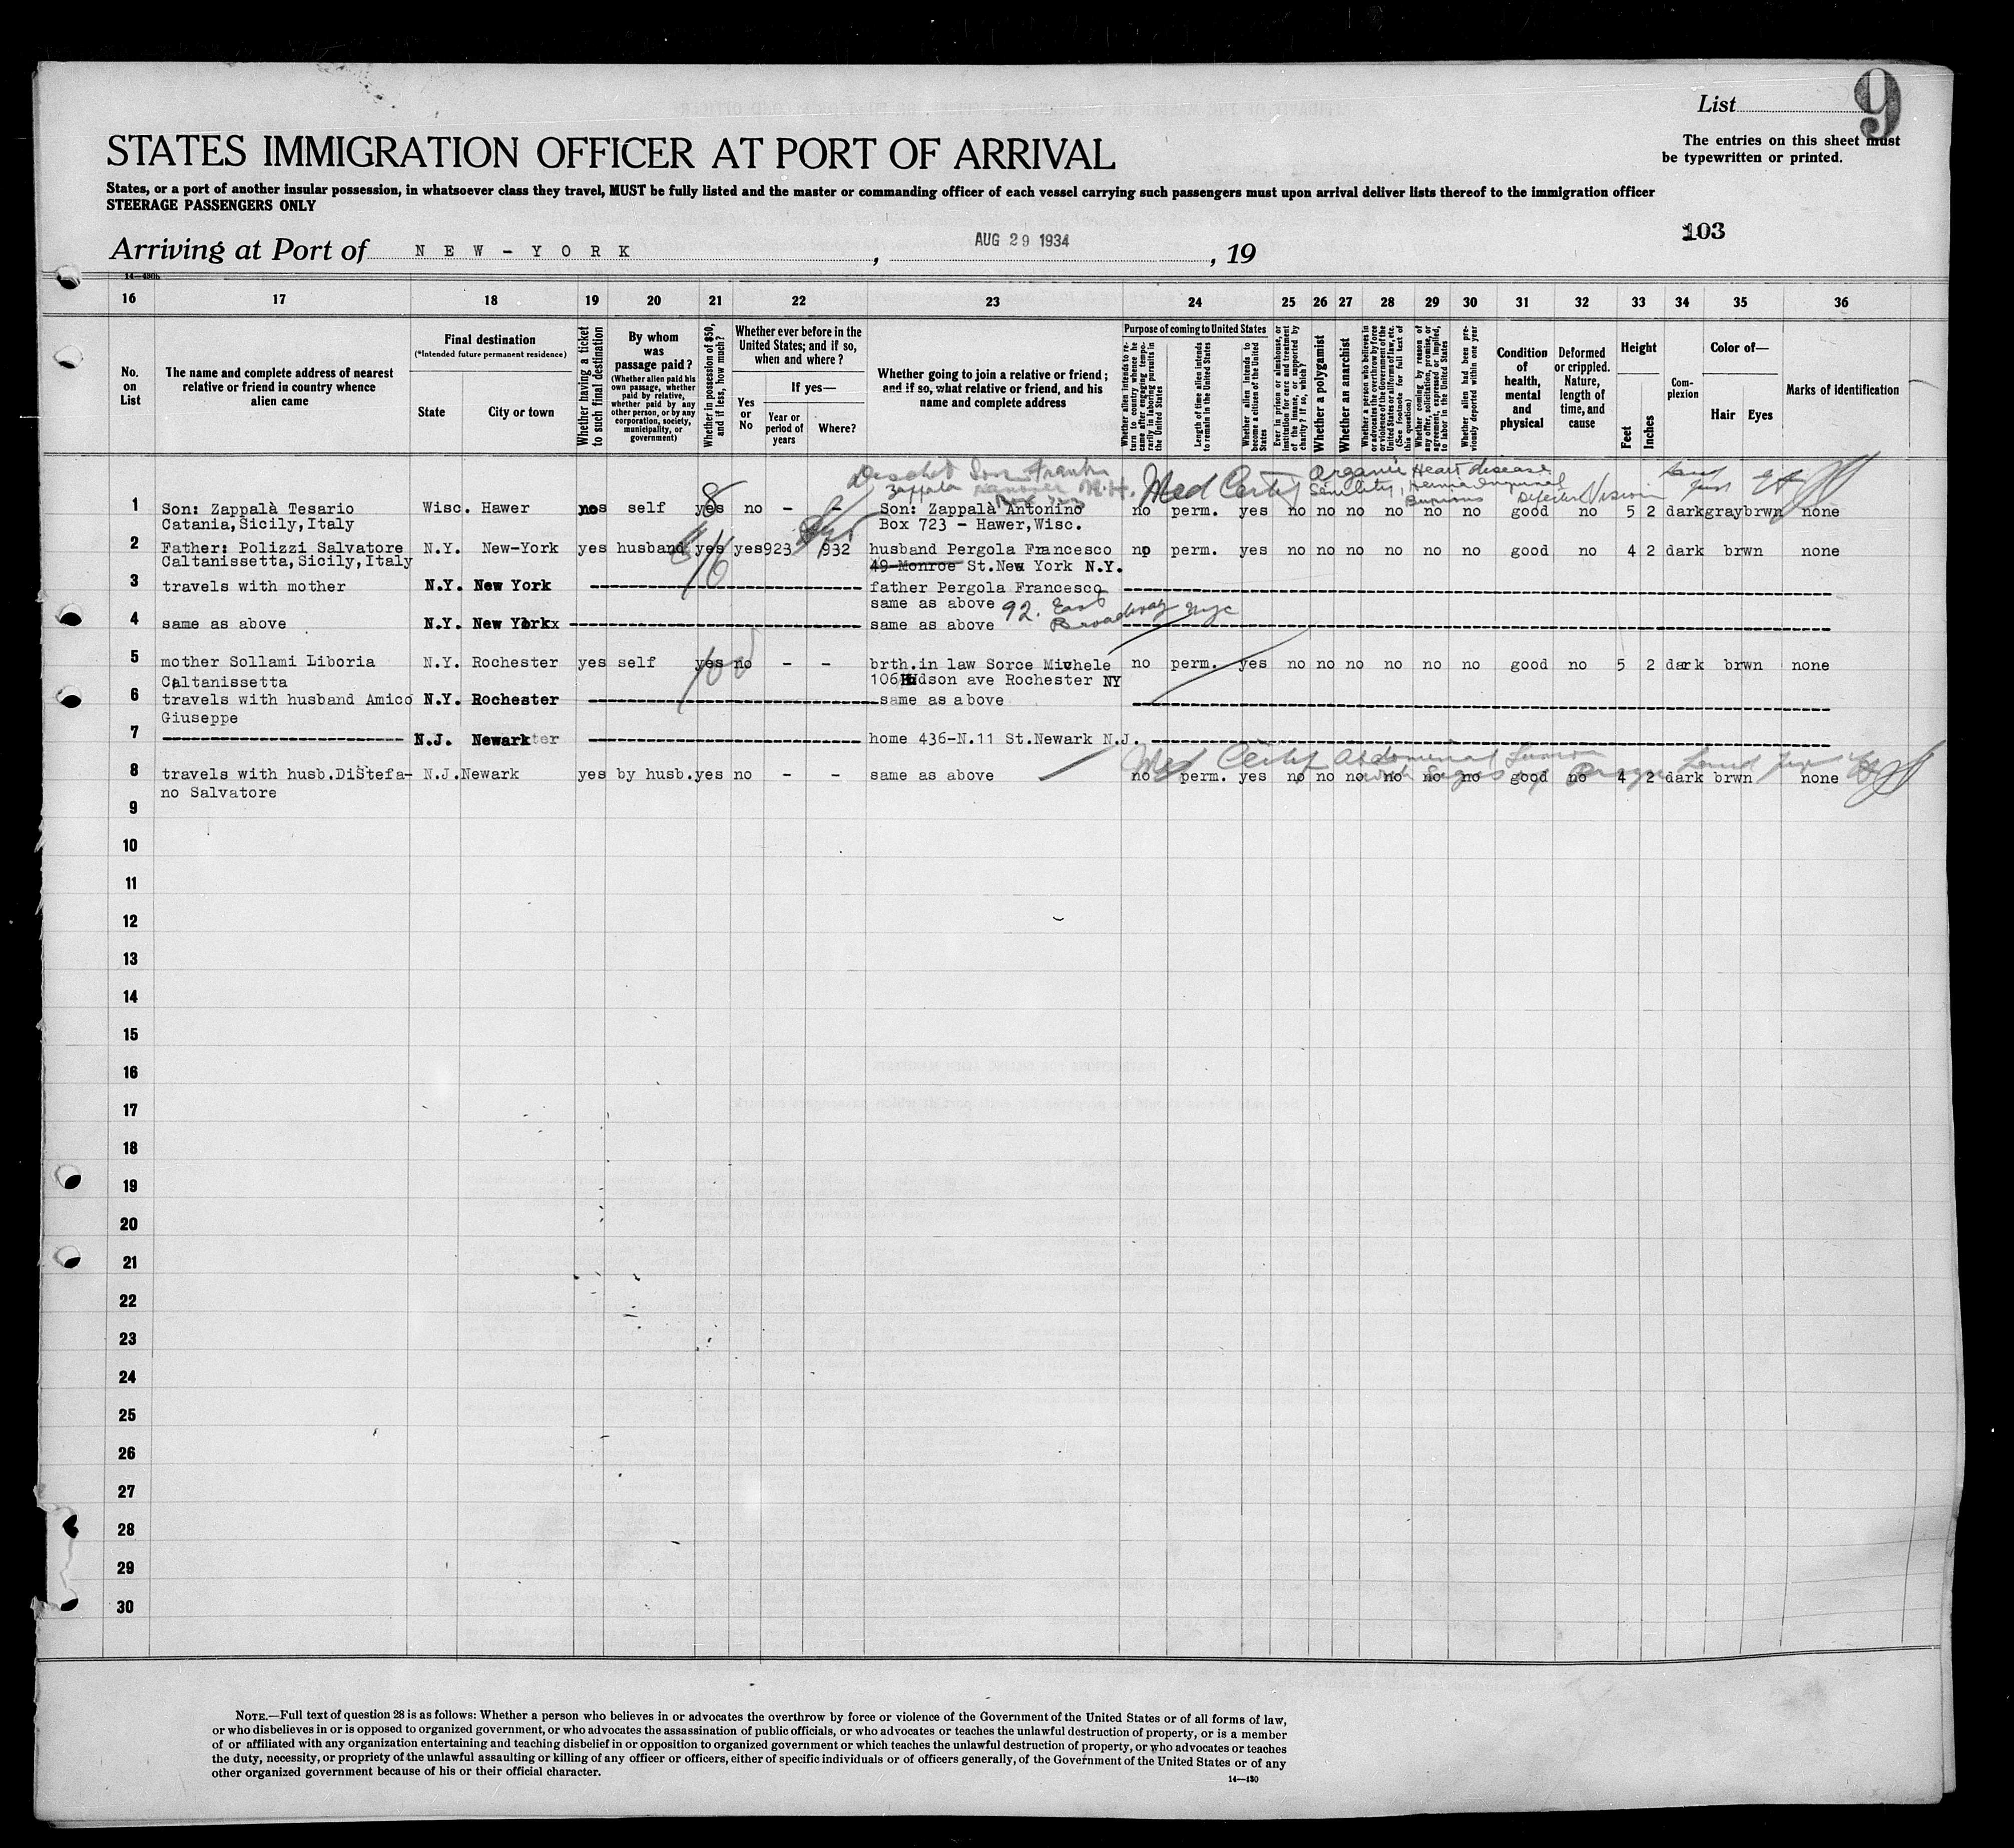 List 9
The entries on this sheet must
be typewritten or printed.
STATES IMMIGRATION OFFICER AT PORT OF ARRIVAL
States, or a port of another insular possession, in whatsoever class they travel, MUST be fully listed and the master or commanding officer of each vessel carrying such passengers must upon arrival deliver lists thereof to the immigration officer
STEERAGE PASSENGERS ONLY
103
Arriving at Port of NEW-YORK, AUG 29 1934, 19
14-430b
16 17 18 19 20 21 22 23 24 25 26 27 28 29 30 31 32 33 34 35 36
No. on List
The name and complete address of nearest relative or friend in country whence alien came
Final destination
(*Intended future permanent residence)
State
City or town
Whether having a ticket to such final destination
By whom was passage paid?
(Whether alien paid his own passage, whether paid by relative, whether paid by any other person, or by any corporation, society, municipality, or government)
Whether in possession of $50, and if less, how much?
Whether ever before in the United States; and if so, when and where?
Yes or No
If yes—
Year or period of years
Where?
Whether going to join a relative or friend; and if so, what relative or friend, and his name and complete address
Purpose of coming to United States
Whether alien intends to return to country whence he came after engaging temporarily in laboring pursuits in the United States
Length of time alien intends to remain in the United States
Whether alien intends to become a citizen of the United States
Ever in prison or almshouse, or institution for care and treatment of the insane, or supported by charity? If so, which?
Whether a polygamist
Whether an anarchist
Whether a person who believes in or advocates the overthrow by force or violence of the Government of the United States or all forms of law, etc. (See footnote for full text of this question)
Whether coming by reason of any offer, solicitation, promise, or agreement, expressed or implied, to labor in the United States
Whether alien had been previously deported within one year
Condition of health, mental and physical
Deformed or crippled. Nature, length of time, and cause
Height
Feet
Inches
Complexion
Color of—
Hair Eyes
Marks of identification
Zappala
Med Certif Organic Heart disease
Senility, Hernia Inguinal
Defective Vision
1 Son: Zappalà Tesario Wisc. Hawer self yes no - - Son: Zappalà Antonino no perm. yes no no no no no no good no 5 2 dark gray brwn none
Catania, Sicily, Italy Box 723 - Hawer, Wisc.
2 Father: Polizzi Salvatore N.Y. New-York yes husband yes yes 923 932 husband Pergola Francesco no perm. yes no no no no no no good no 4 2 dark brwn none
Caltanissetta, Sicily, Italy 49-Monroe St. New York N.Y.
3 travels with mother N.Y. New York father Pergola Francesco
same as above 92. East
4 same as above N.Y. New Yorkx same as above Broadway Nyc
5 mother Sollami Liboria N.Y. Rochester yes self yes no - - brth.in law Sorce Michele no perm. yes no no no no no no good no 5 2 dark brwn none
Caltanissetta 106 Hudson ave Rochester NY
6 travels with husband Amico N.Y. Rochester same as above
Giuseppe
7 N.J. Newark home 436-N.11 St.Newark N.J.
Med Certif Abdominal Tumor
8 travels with husb.DiStefa- N.J. Newark yes by husb. yes no - - same as above no perm. yes no no no no no no good no 4 2 dark brwn none
no Salvatore
9
10
11
12
13
14
15
16
17
18
19
20
21
22
23
24
25
26
27
28
29
30
NOTE.—Full text of question 28 is as follows: Whether a person who believes in or advocates the overthrow by force or violence of the Government of the United States or of all forms of law,
or who disbelieves in or is opposed to organized government, or who advocates the assassination of public officials, or who advocates or teaches the unlawful destruction of property, or is a member
of or affiliated with any organization entertaining and teaching disbelief in or opposition to organized government or which teaches the unlawful destruction of property, or who advocates or teaches
the duty, necessity, or propriety of the unlawful assaulting or killing of any officer or officers, either of specific individuals or of officers generally, of the Government of the United States or of any
other organized government because of his or their official character.
14-430